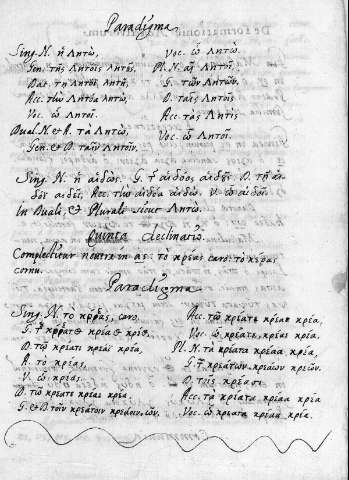 Paradigma
Sing. N. ἡ Λητὼ,
Gen. τῆς Λητόος Λητοῦς,
Dat. τῇ Λητόϊ Λητοῖ,
Acc. τὴν Λητόα Λητὼ,
Voc. ὦ Λητοῖ.
Dual. N. & A. τὰ Λητὼ,
Gen. & D. ταῖν Λητοῖν.
Voc. ὦ Λητώ.
Pl. N. αἱ Λητοὶ.
G. τῶν Λητῶν.
D. ταῖς Λητοῖς
Acc. τὰς Λητὺς
Voc. ὦ Λητοὶ.
Sing. N. ἡ αἰδὼς. G. τῆς αἰδόος αἰδοῦς. D. τῇ αἰ-
δόϊ αἰδοῖ, Acc. τὴν αἰδόα αἰδῶ. V. ὦ αἰδοῖ.
In Duali, & Plurali sicut Λητώ.
Quinta declinatio.
Complectitur neutra in ας. τὸ κρέας caro: τὸ κέρας
cornu.
Paradigma
Sing. N. τὸ κρέας, caro.
G. τοῦ κρέατος κρέαος κρέως,
D. τῷ κρέατι κρέαϊ κρέᾳ,
A. τὸ κρέας
V. ὦ κρέας.
D. τὼ κρέατε κρέαε κρέα
G. & D. τοῖν κρεάτοιν κρεάοιν, ῶν.
Acc. τὼ κρέατε κρέαε κρέα,
Voc. ὦ κρέατε κρέαε κρέα.
Pl. N. τὰ κρέατα κρέαα κρέα,
G. τῶν κρεάτων κρεάων κρεῶν.
D. τοῖς κρέασι
Acc. τὰ κρέατα κρέαα κρέα
Voc. ὦ κρέατα κρέαα κρέα.